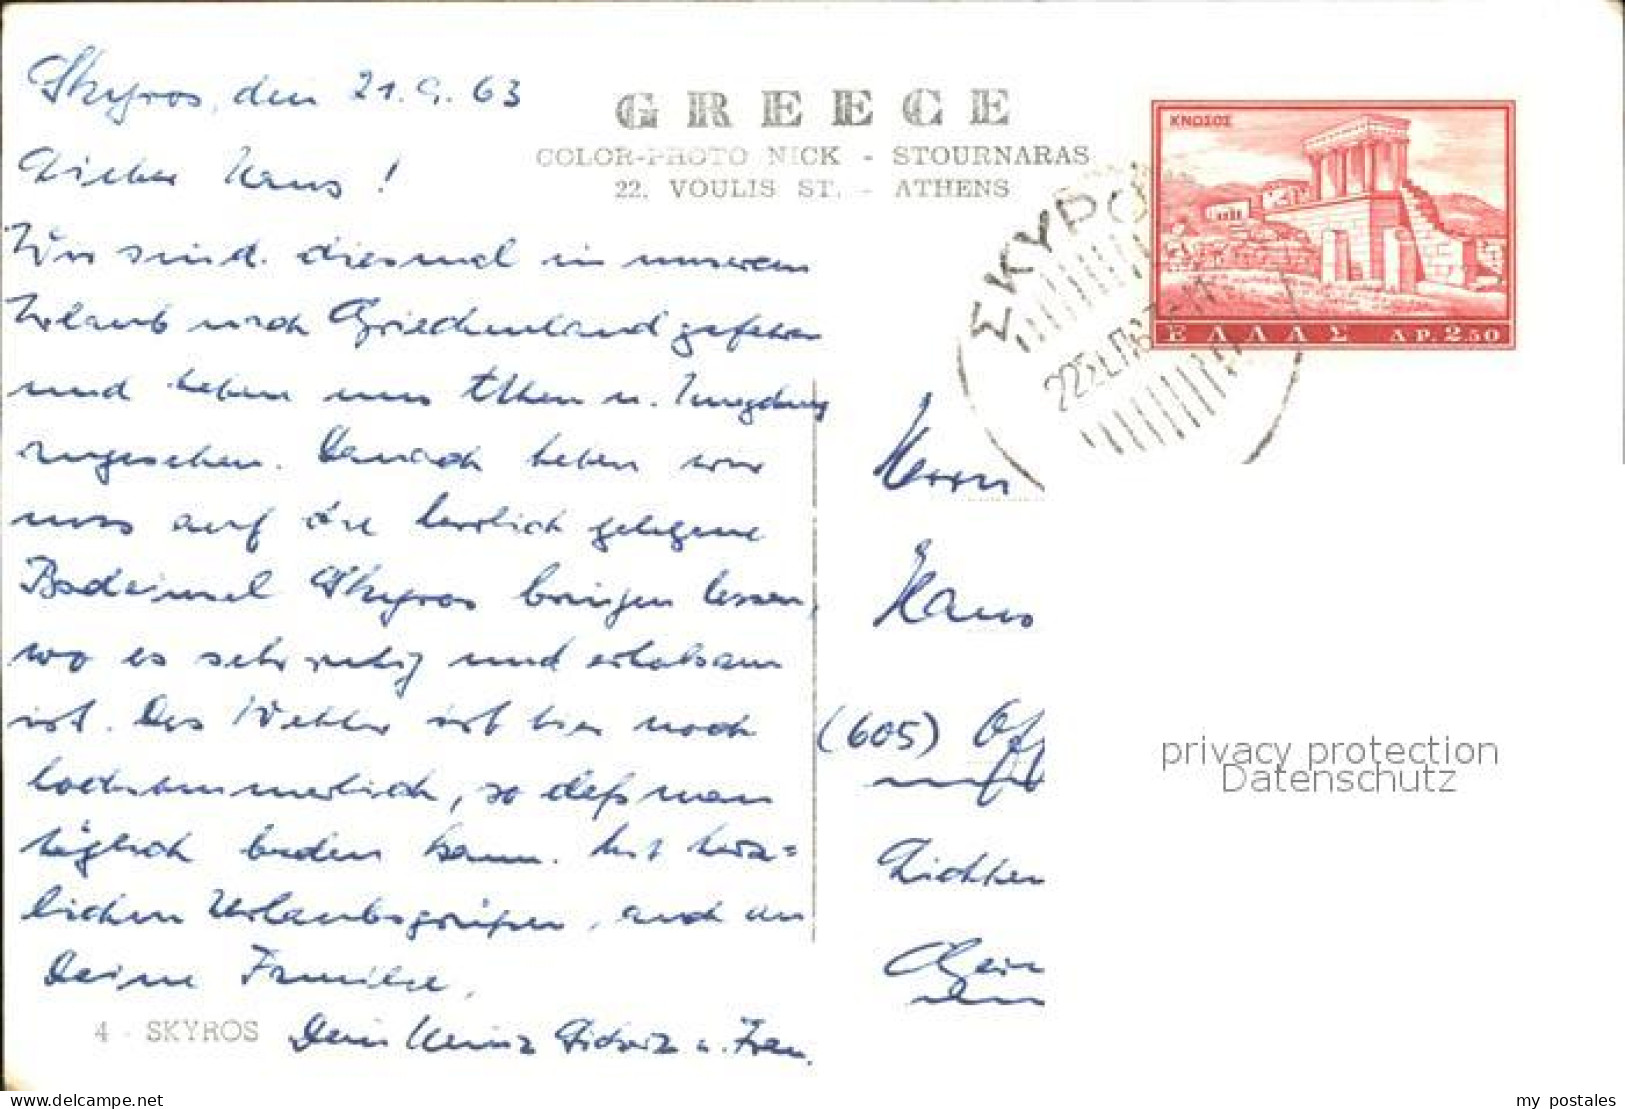 Skyros, den 21.9.63
GREECE
COLOR-PHOTO NICK - STOURNARAS
22. VOULIS ST. - ATHENS
Lieber Hans!
Wir sind diesmal in unserem
Urlaub nach Griechenland gefahren
und haben uns Athen u. Umgebung
angesehen. Danach haben wir
uns auf die herrlich gelegene
Badeinsel Skyros bringen lassen,
wo es sehr ruhig und erholsam
ist. Das Wetter ist hier noch
hochsommerlich, so daß man
täglich baden kann. Mit herz=
lichen Urlaubsgrüßen, auch an
Deine Familie,
Dein Heinz u. Frau.
4 - SKYROS
ΚΝΩΣΟΣ
ΕΛΛΑΣ ΔΡ. 2.50
ΣΚΥΡΟ
22 ΣΕΠ 63
Herrn
Hans
(605) Off
Lichten
privacy protection
Datenschutz
my postales